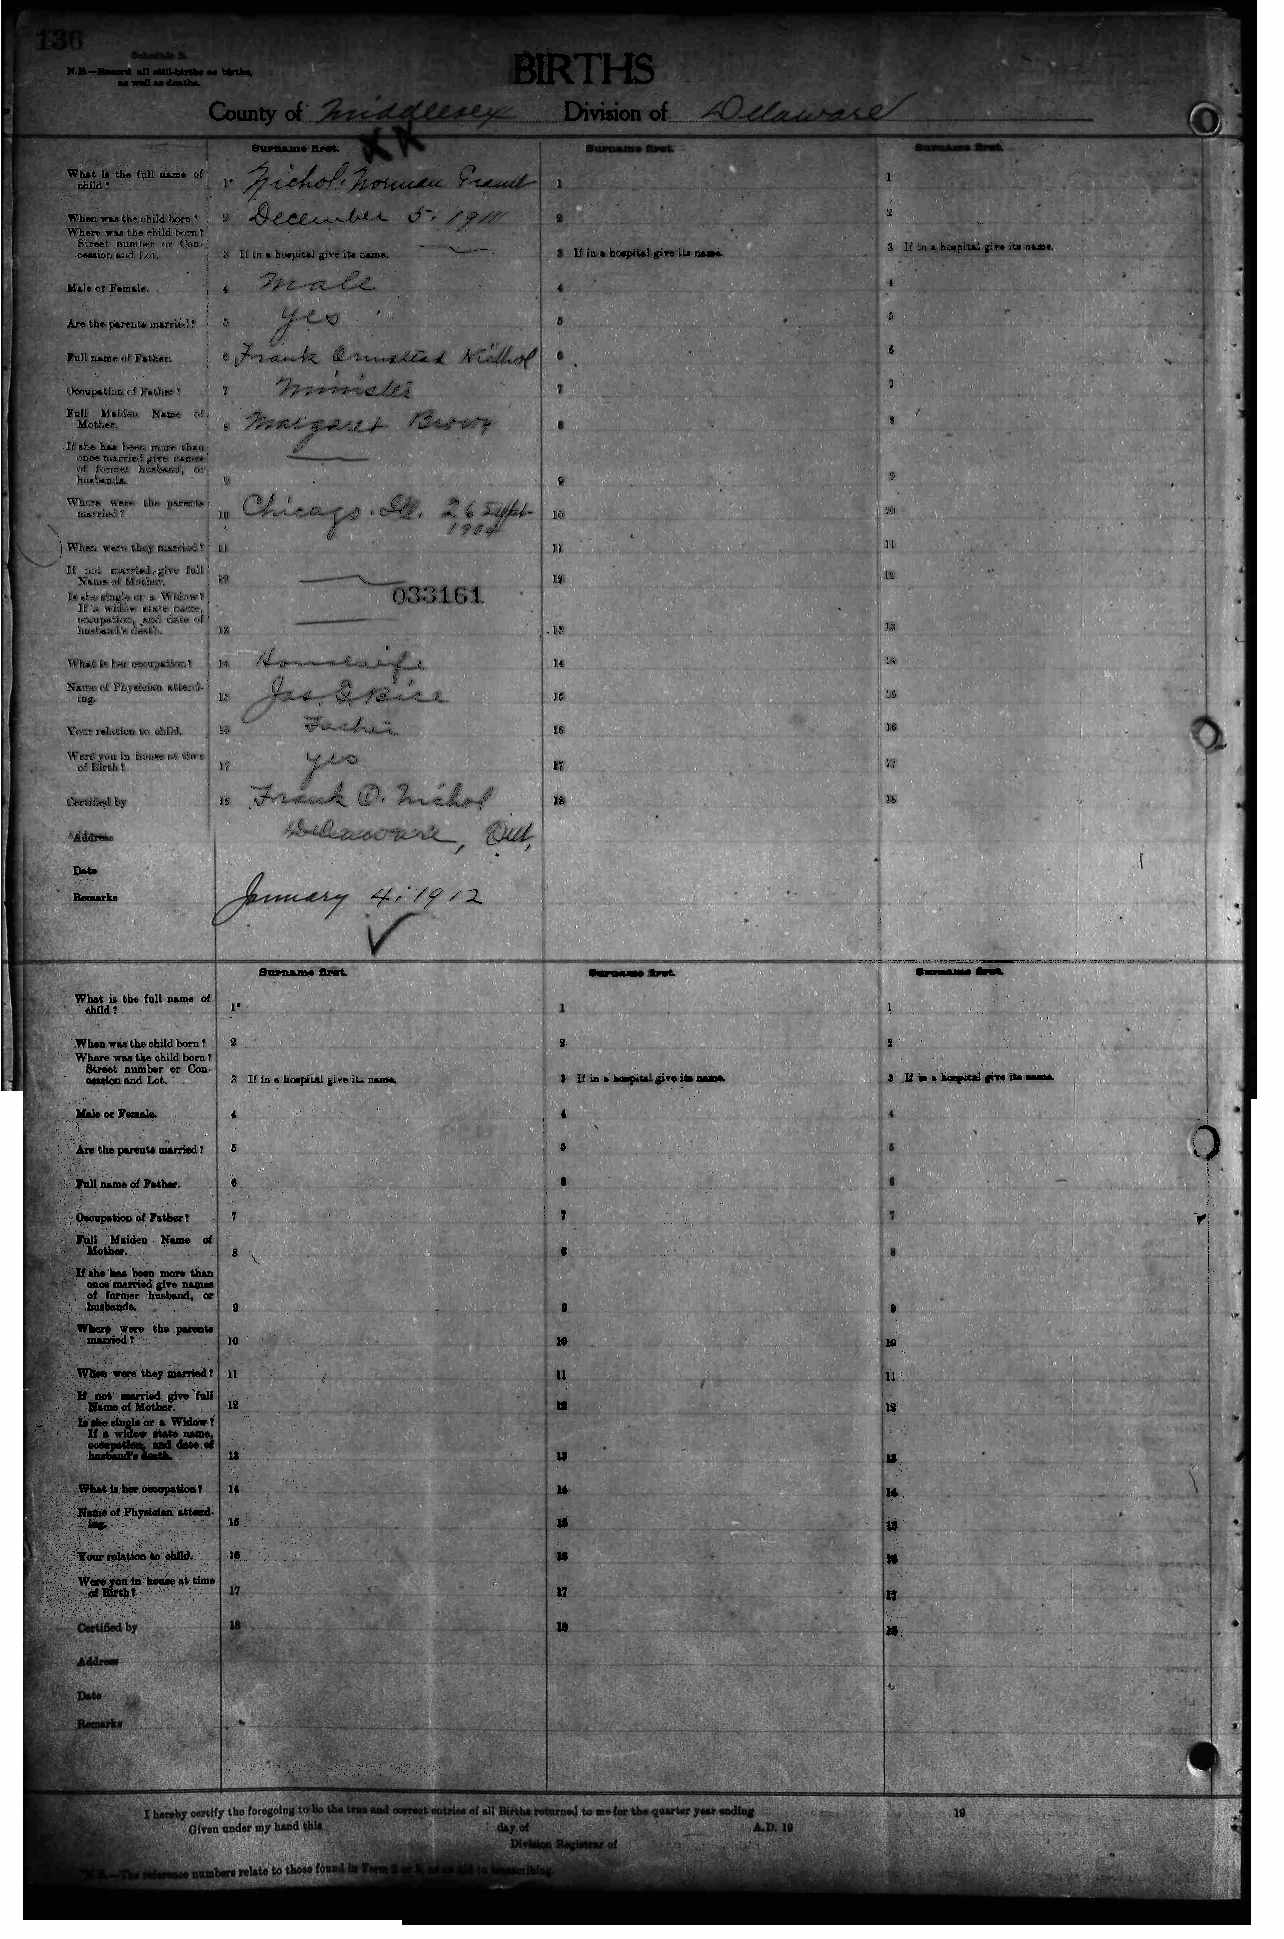 136
Schedule B.
N.B.—Record all still-births as births,
as well as deaths.
BIRTHS
County of Middlesex Division of Delaware
XX
Surname first. Surname first. Surname first.
What is the full name of
child? 1 Nichol. Norman 1 1
When was the child born? 2 December 5. 1911 2 2
Where was the child born?
Street number or Con-
cession and Lot. 3 If in a hospital give its name. — 3 If in a hospital give its name. 3 If in a hospital give its name.
Male or Female. 4 Male 4 4
Are the parents married? 5 Yes 5 5
Full name of Father. 6 Frank Nichol 6 6
Occupation of Father? 7 Minister 7 7
Full Maiden Name of
Mother. 8 Margaret Brown 8 8
If she has been more than
once married give names
of former husband, or
husbands. 9 — 9 9
Where were the parents
married? 10 Chicago. Ill. 26 Sept 10 10
1904
When were they married? 11 11 11
If not married, give full
Name of Mother. 12 — 12 12
033161
Is she single or a Widow?
If a widow state name,
occupation, and date of
husband's death. 13 — 13 13
What is her occupation? 14 Housewife 14 14
Name of Physician attend-
ing. 15 Jas. G Rice 15 15
Your relation to child. 16 Father 16 16
Were you in house at time
of Birth? 17 yes 17 17
Certified by 18 Frank O. Nichol 18 18
Address Delaware, Ont.
Date
Remarks January 4: 1912
✓
Surname first. Surname first. Surname first.
What is the full name of
child? 1 1 1
When was the child born? 2 2 2
Where was the child born?
Street number or Con-
cession and Lot. 3 If in a hospital give its name. 3 If in a hospital give its name. 3 If in a hospital give its name.
Male or Female. 4 4 4
Are the parents married? 5 5 5
Full name of Father. 6 6 6
Occupation of Father? 7 7 7
Full Maiden Name of
Mother. 8 8 8
If she has been more than
once married give names
of former husband, or
husbands. 9 9 9
Where were the parents
married? 10 10 10
When were they married? 11 11 11
If not married give full
Name of Mother. 12 12 12
Is she single or a Widow?
If a widow state name,
occupation, and date of
husband's death. 13 13 13
What is her occupation? 14 14 14
Name of Physician attend-
ing. 15 15 15
Your relation to child. 16 16 16
Were you in house at time
of Birth? 17 17 17
Certified by 18 18 18
Address
Date
Remarks
I hereby certify the foregoing to be the true and correct entries of all Births returned to me for the quarter year ending 19
Given under my hand this day of A.D. 19
Division Registrar of
N.B.—The reference numbers relate to those found in Form 2 or 3, as an aid to transcribing.